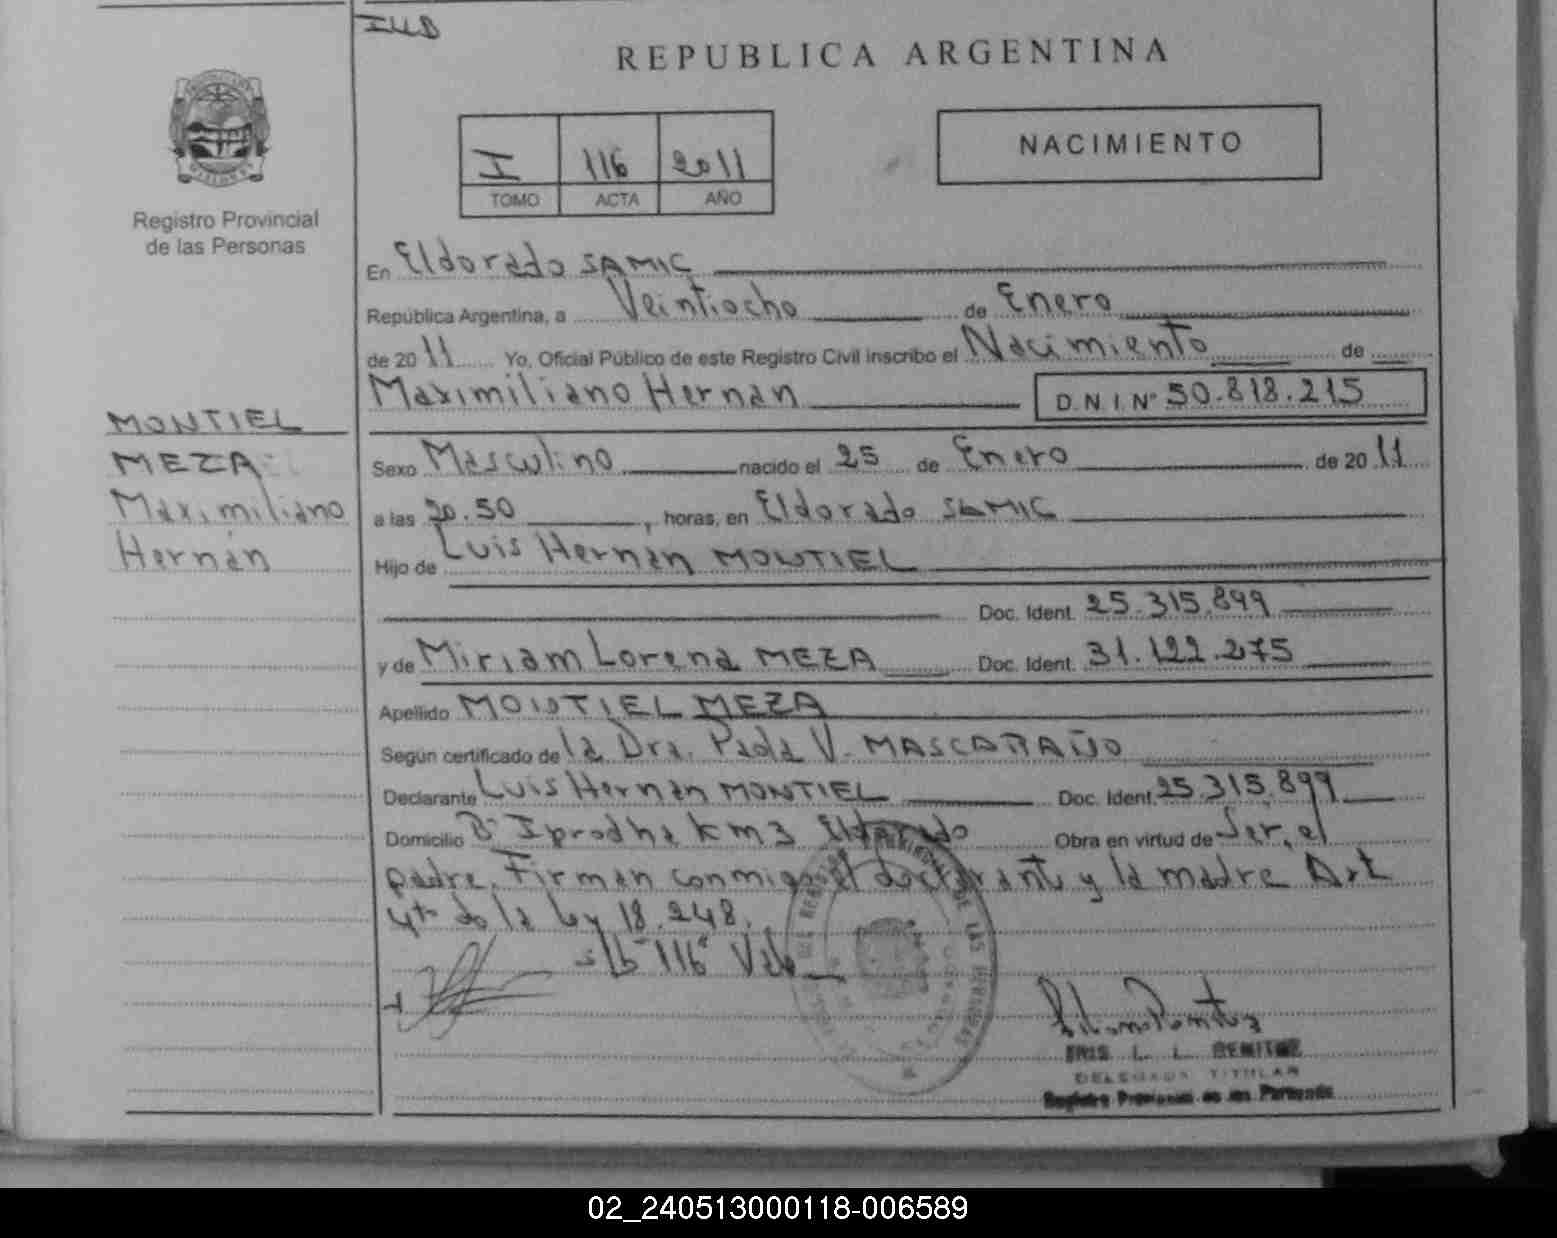 REPUBLICA ARGENTINA
I 116 2011
TOMO ACTA AÑO
NACIMIENTO
Registro Provincial
de las Personas
En Eldorado SAMIC
República Argentina, a Veintiocho de Enero
de 2011 Yo, Oficial Público de este Registro Civil inscribo el Nacimiento de
Maximiliano Hernan D.N.I. Nº 50.818.215
MONTIEL
MEZA
Maximiliano
Hernán
Sexo Masculino nacido el 25 de Enero de 2011
a las 20.50, horas, en Eldorado SAMIC
Hijo de Luis Hernán MONTIEL
Doc. Ident. 25.315.899
y de Miriam Lorena MEZA Doc. Ident. 31.122.275
Apellido MONTIEL MEZA
Según certificado de la Dra. Paola V. MASCARAÑO
Declarante Luis Hernán MONTIEL Doc. Ident. 25.315.899
Domicilio Bº Iprodha km 3 Eldorado Obra en virtud de Ser, el
padre. Firman conmigo el declarante y la madre Art
4to de la ley 18.248.
s/b 116 Vale
IRIS L. L. BENITEZ
DELEGADA TITULAR
Registro Provincial de las Personas
02_240513000118-006589